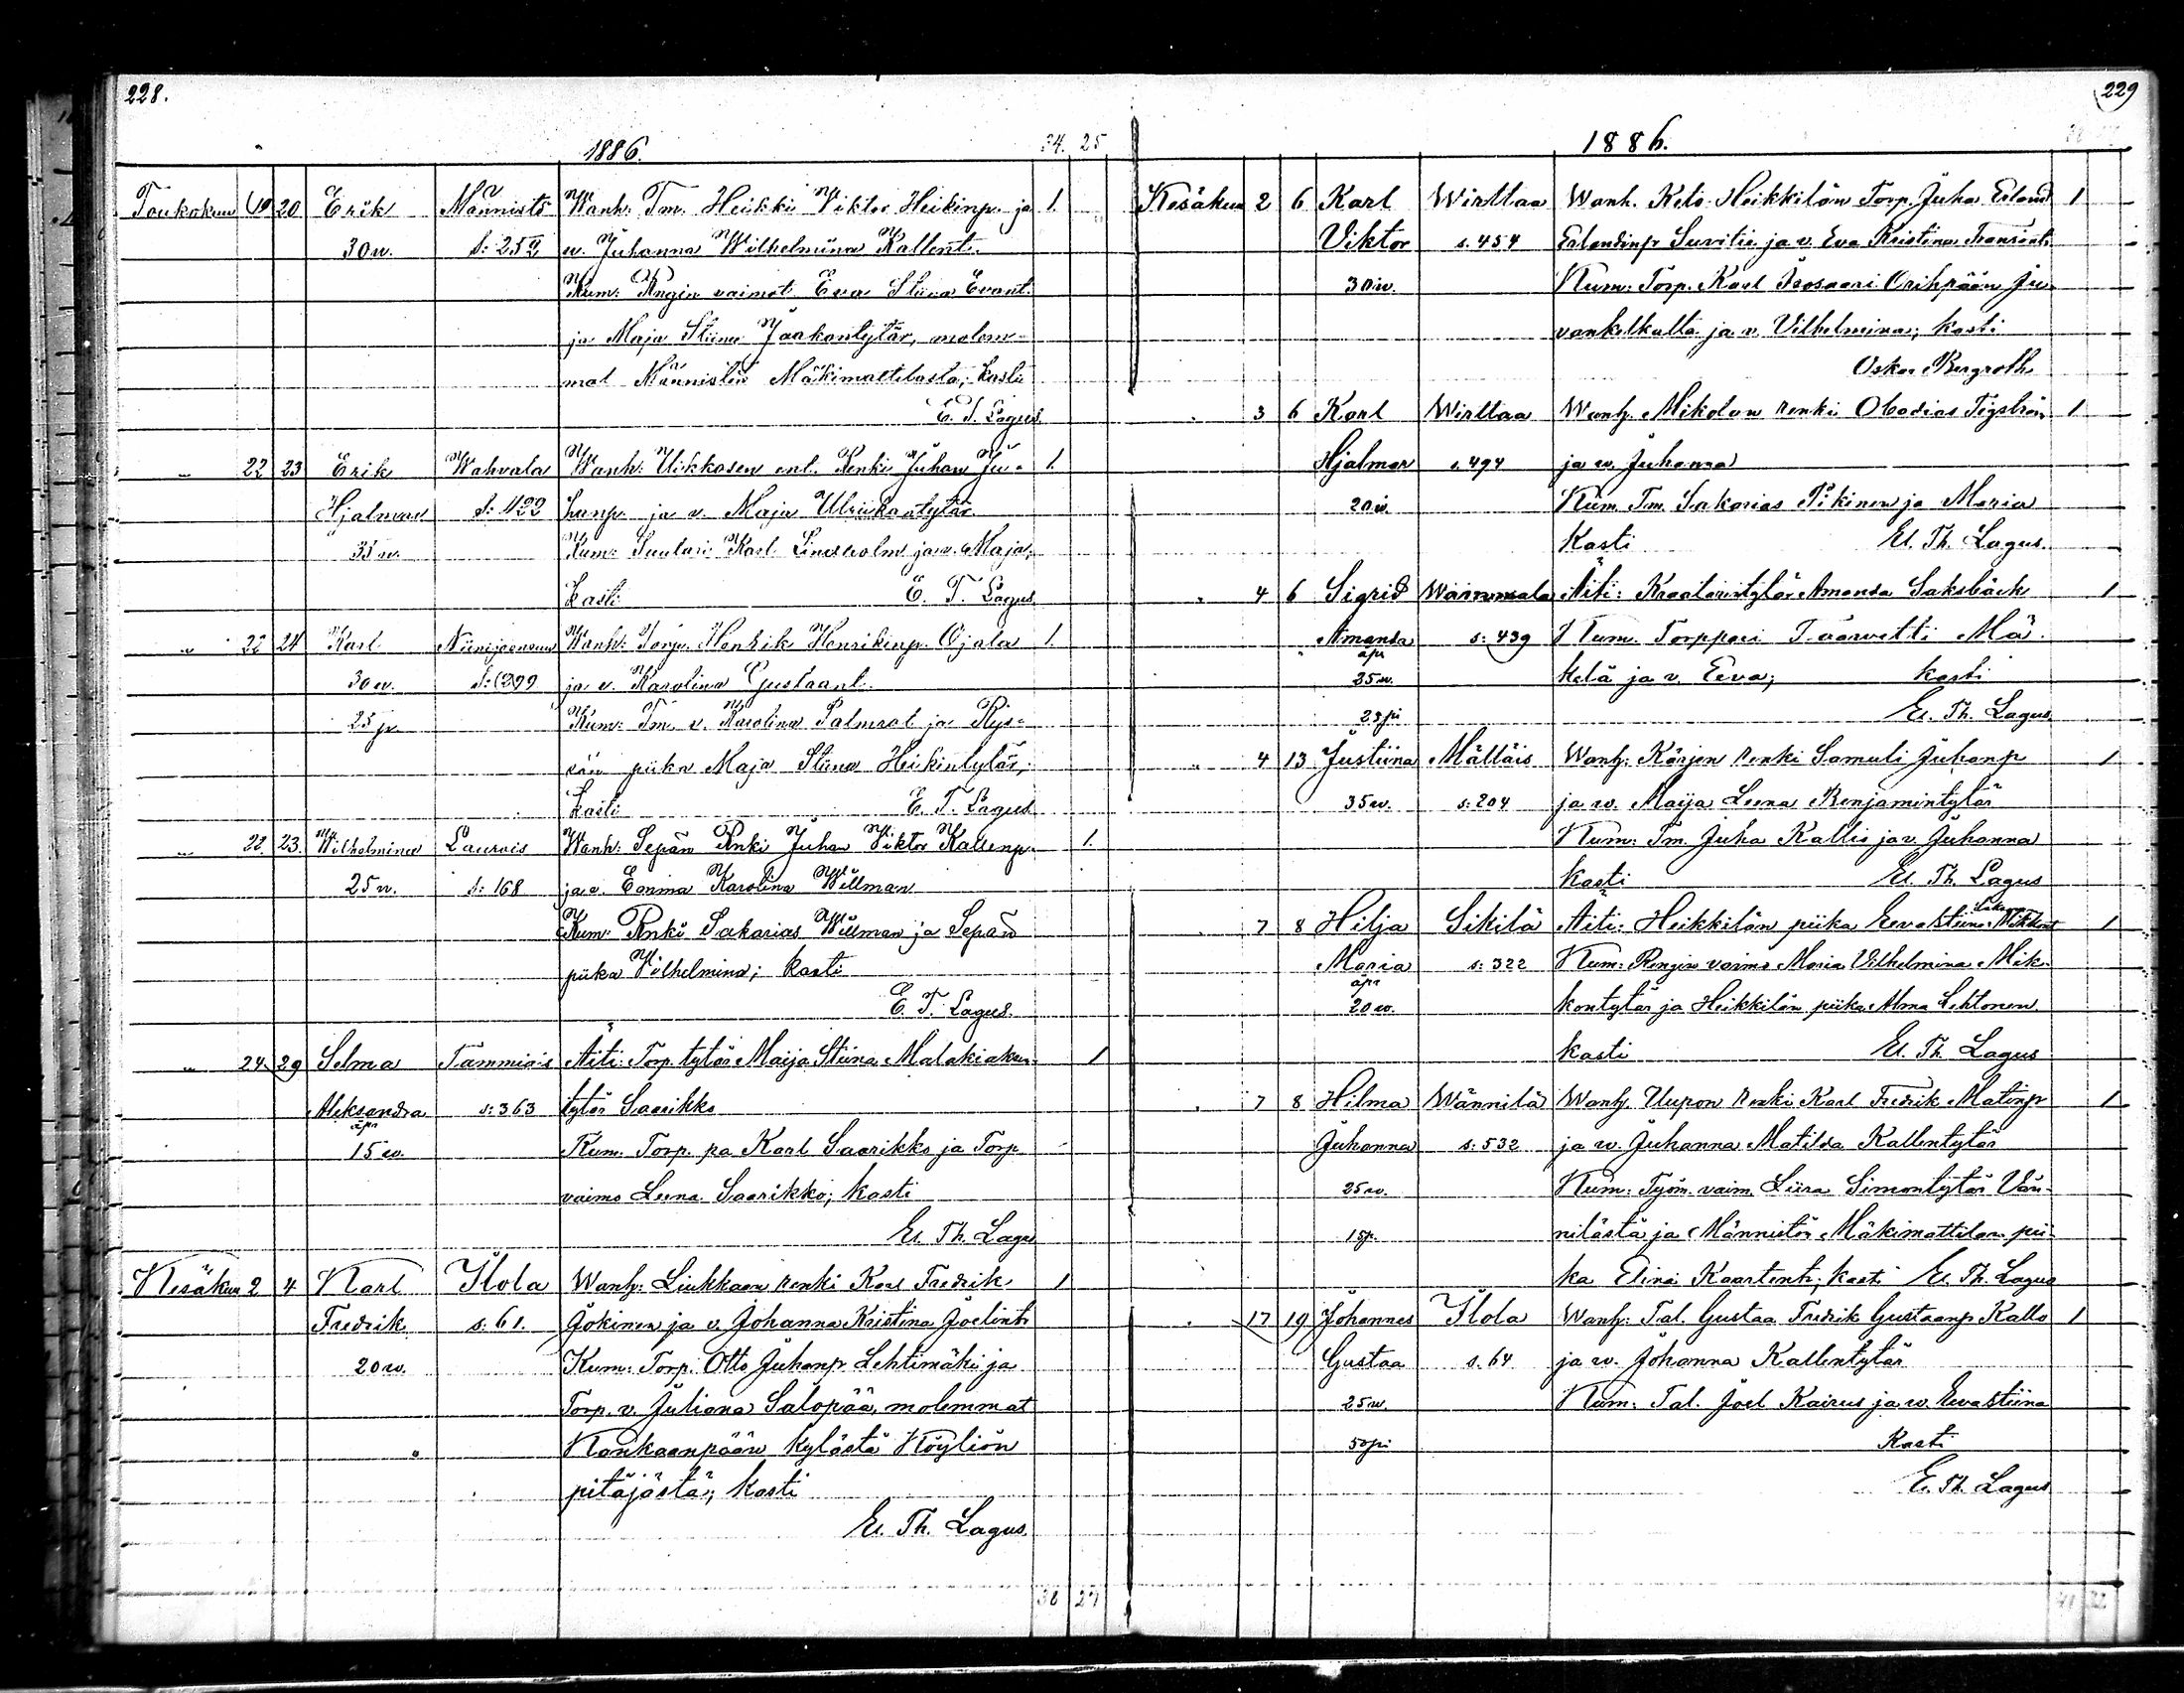 228.
1886.
34. 25
Toukokuu 20 Erik Männistö Wanh: Tm. Heikki Viktor Heikinp. ja 1.
30 w. s: 252 w. Juhanna Wilhelmiina Kallent.
Kum: Rngin vaimot Eva Stiina Evant.
ja Maja Stiina Jaakontytär, molem-
mat Männistön Mäkimattilasta; kasti
E. T. Lagus.
" 22 23 Erik Wahvala Wanh: Uikkosen ent. Renki Juhan Ju- 1.
Hjalmar s: 422 hanp. ja v. Maja Ulriikantytär
35 w. Kum: Suutari Karl Lindholm ja v. Maja;
kasti E. T. Lagus.
" 22 24 Karl Niinijoensuu Wanh: Torp. Henrik Henrikinp. Ojala 1.
30 w. s: 299 ja v. Karolina Gustaant.
25 p. Kum: Tm. v. Karolina Palmrot ja
piika Maja Stiina Heikintytär;
kasti E. T. Lagus
" 22. 23. Wilhelmina Laurois Wanh: Sepän Rnki Juhan Viktor Kallenp. 1.
25 w. s: 168 ja v. Emma Karolina Willman
Kum: Rnki Sakarias Willman ja Sepän
piika Vilhelmina; kasti
E. T. Lagus.
" 24 29 Selma Tammiais Äiti: Torp. tytär Maija Stiina Malakiaksen- 1
Aleksandra s: 363 tytär Saarikko
äpr
15 w. Kum. Torp. pa Karl Saarikko ja Torp.
vaimo Leena Saarikko; kasti
El. Th. Lagus
Kesäkuu 2 4 Karl Ilola Wanh: Liukkaan renki Karl Fredrik 1
Fredrik s. 61. Jokinen ja v. Johanna Kristina Joelint.
20 w. Kum: Torp. Otto Juhanp. Lehtimäki ja
Torp. v. Juliana Salopää, molemmat
Kankaanpään kylästä Köyliön
pitäjästä; kasti
El. Th. Lagus.
229
1886.
Kesäkuu 2 6 Karl Wirttaa Wanh. Keto-Heikkilän Torp. Juha Erland 1
Viktor s. 454 Erlandinp Suvitie ja v. Eva Kristina
30 w. Kum: Torp. Karl Isosaari Orihpään Ju-
vankylästä ja v. Vilhelmina; kasti
Oskar Bergroth
" 3 6 Karl Wirttaa Wanh. Mikolan renki Obadias Tigström 1
Hjalmar s. 494 ja w. Juhanna
20 w. Kum. Tm. Sakarias Pikinen ja Maria
Kasti El. Th. Lagus.
" 4 6 Sigrid Wammala Äiti: Kraatarintytär Amanda Saksbäck 1
Amanda s: 439 Kum. Torppari Taavetti Mä-
äpr
25 w. kelä ja v. Eeva; kasti
25 pi El. Th. Lagus
" 4 13 Justiina Mältäis Wanh: Kärjen renki Samuli Juhanp 1
35 w. s: 204 ja w. Maija Leena Benjamintytär
Kum: Tm. Juha Kallio ja v. Juhanna
kasti El. Th. Lagus
" 7 8 Hilja Sikilä Äiti: Heikkilän piika Eevastiina Mikkont 1
Maria s: 322 Kum: Rengin vaimo Maria Vilhelmina Mik-
äpr
20 w. kontytär ja Heikkilän piika Alma Lehtonen
kasti El. Th. Lagus
" 7 8 Hilma Wännilä Wanh. Uupon renki Karl Fredrik Matinp 1
Juhanna s: 532 ja w. Juhanna Matilda Kallentytär
25 w. Kum: Työm. vaim. Liisa Simontytär Vän-
15 p. nilästä ja Männistön Mäkimattilan pii-
ka Elina Kaartent; kasti El. Th. Lagus
" 17 19 Johannes Ilola Wanh: Tal. Gustaa Fredrik Gustaanp Kallo 1
Gustaa s. 64 ja w. Johanna Kallentytär
25 w. Kum: Tal. Joel Kairus ja w. Eevastiina
50 pi Kasti
E. Th. Lagus